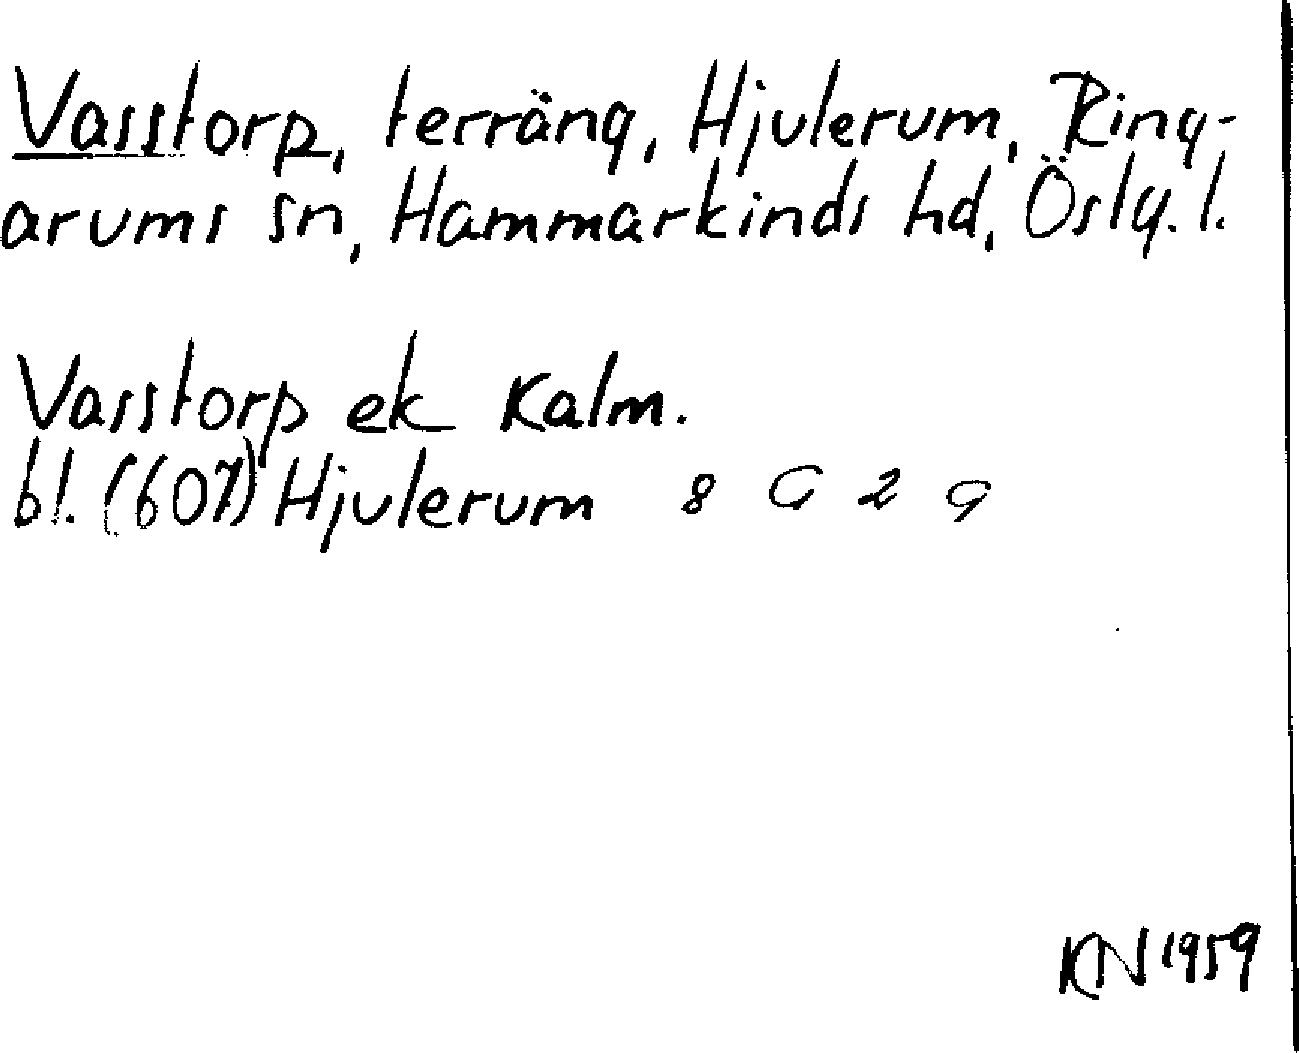 Vasstorp, terräng, Hjulerum, Ring-
arums sn, Hammarkinds hd, Östg. l.
Vasstorp ek Kalm.
bl. (607) Hjulerum 8 G 2 g
KN 1959